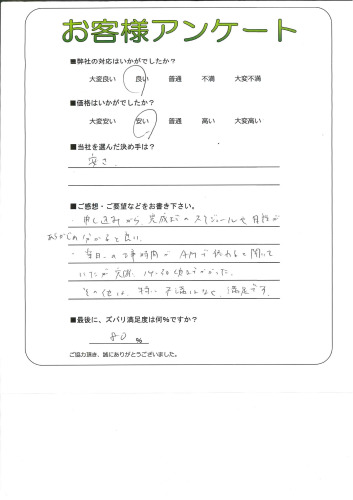 お客様アンケート
■弊社の対応はいかがでしたか?
大変良い 良い 普通 不満 大変不満
■価格はいかがでしたか?
大変安い 安い 普通 高い 大変高い
■当社を選んだ決め手は?
安さ
■ご感想・ご要望などをお書き下さい。
・申し込みから、完成までのスケジュールや
分かると良い。
・当日の 時間が AMで終わると聞いて
いたが実際、14:30 位までかかった。
その他は、特に不満はなく、満足です。
■最後に、ズバリ満足度は何%ですか?
80 %
ご協力頂き、誠にありがとうございました。